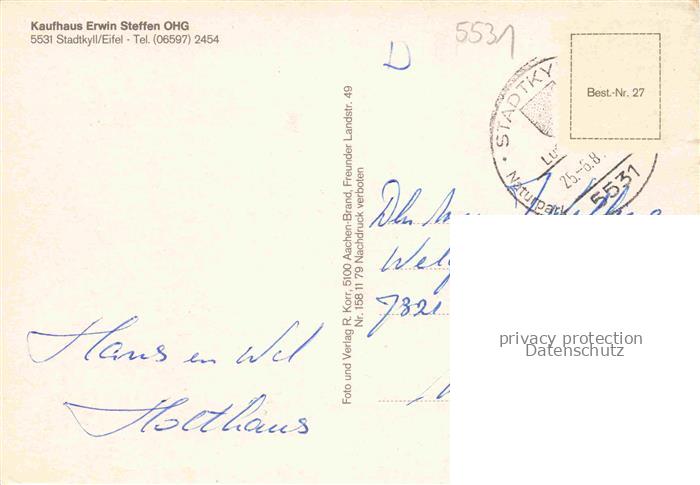 Kaufhaus Erwin Steffen OHG
5531 Stadtkyll/Eifel - Tel. (06597) 2454
5531
D
Best.-Nr. 27
STADTKY
Lu
25.-6.8
Naturpark
5531
Foto und Verlag R. Korr, 5100 Aachen-Brand, Freunder Landstr. 49
Nr. 158 11 79 Nachdruck verboten
7321
Hans en Wel
Holthaus
privacy protection
Datenschutz